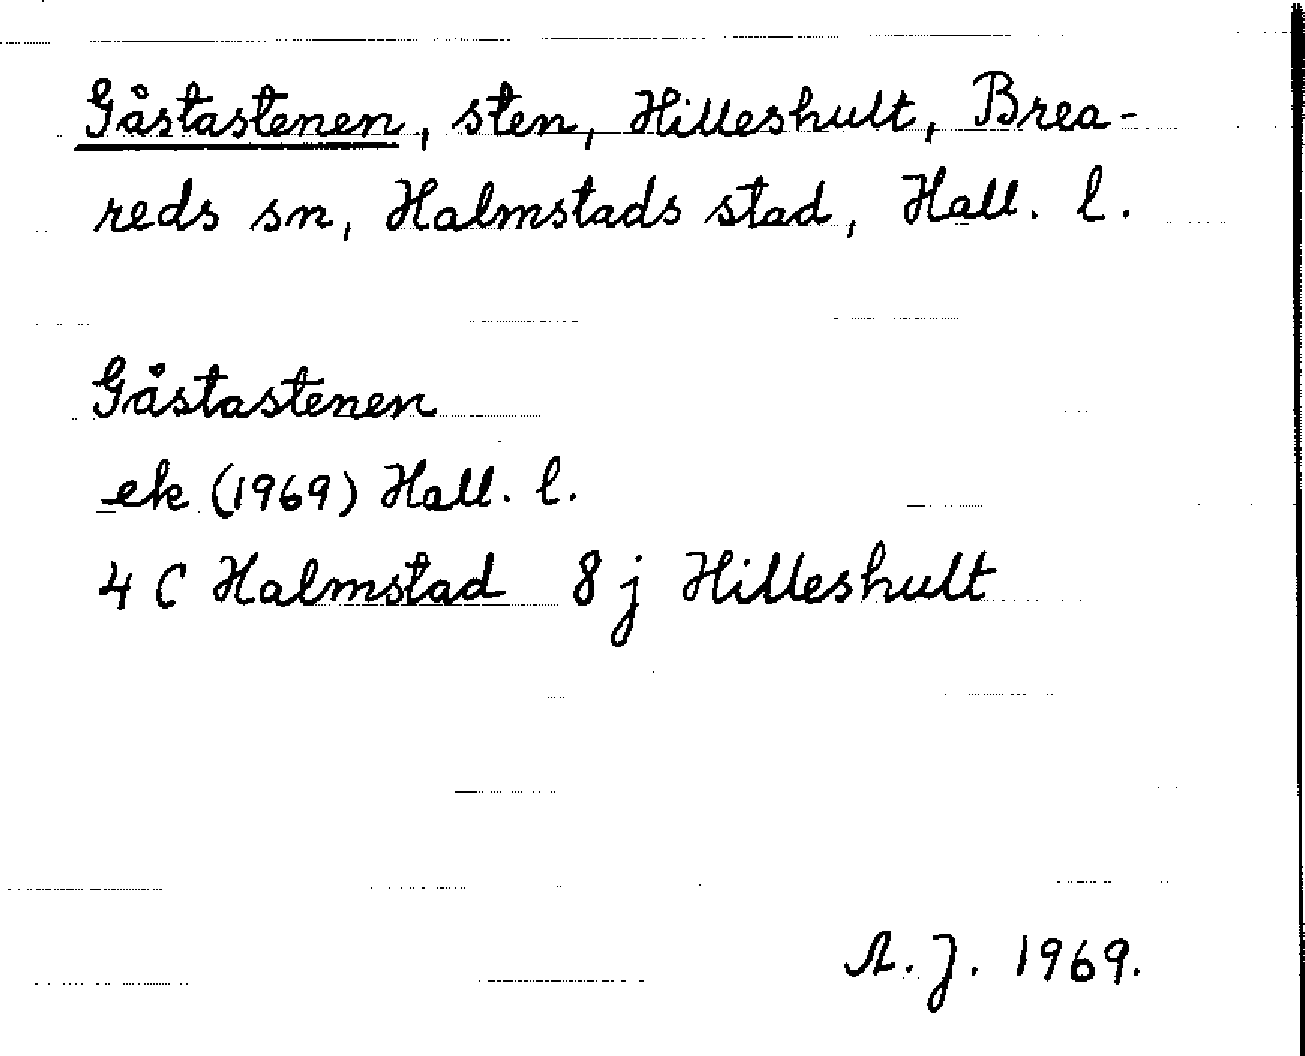 Gåstastenen, sten, Hilleshult, Brea-
reds sn, Halmstads stad, Hall. l.
Gåstastenen
ek (1969) Hall. l.
4 C Halmstad 8 j Hilleshult
A. J. 1969.